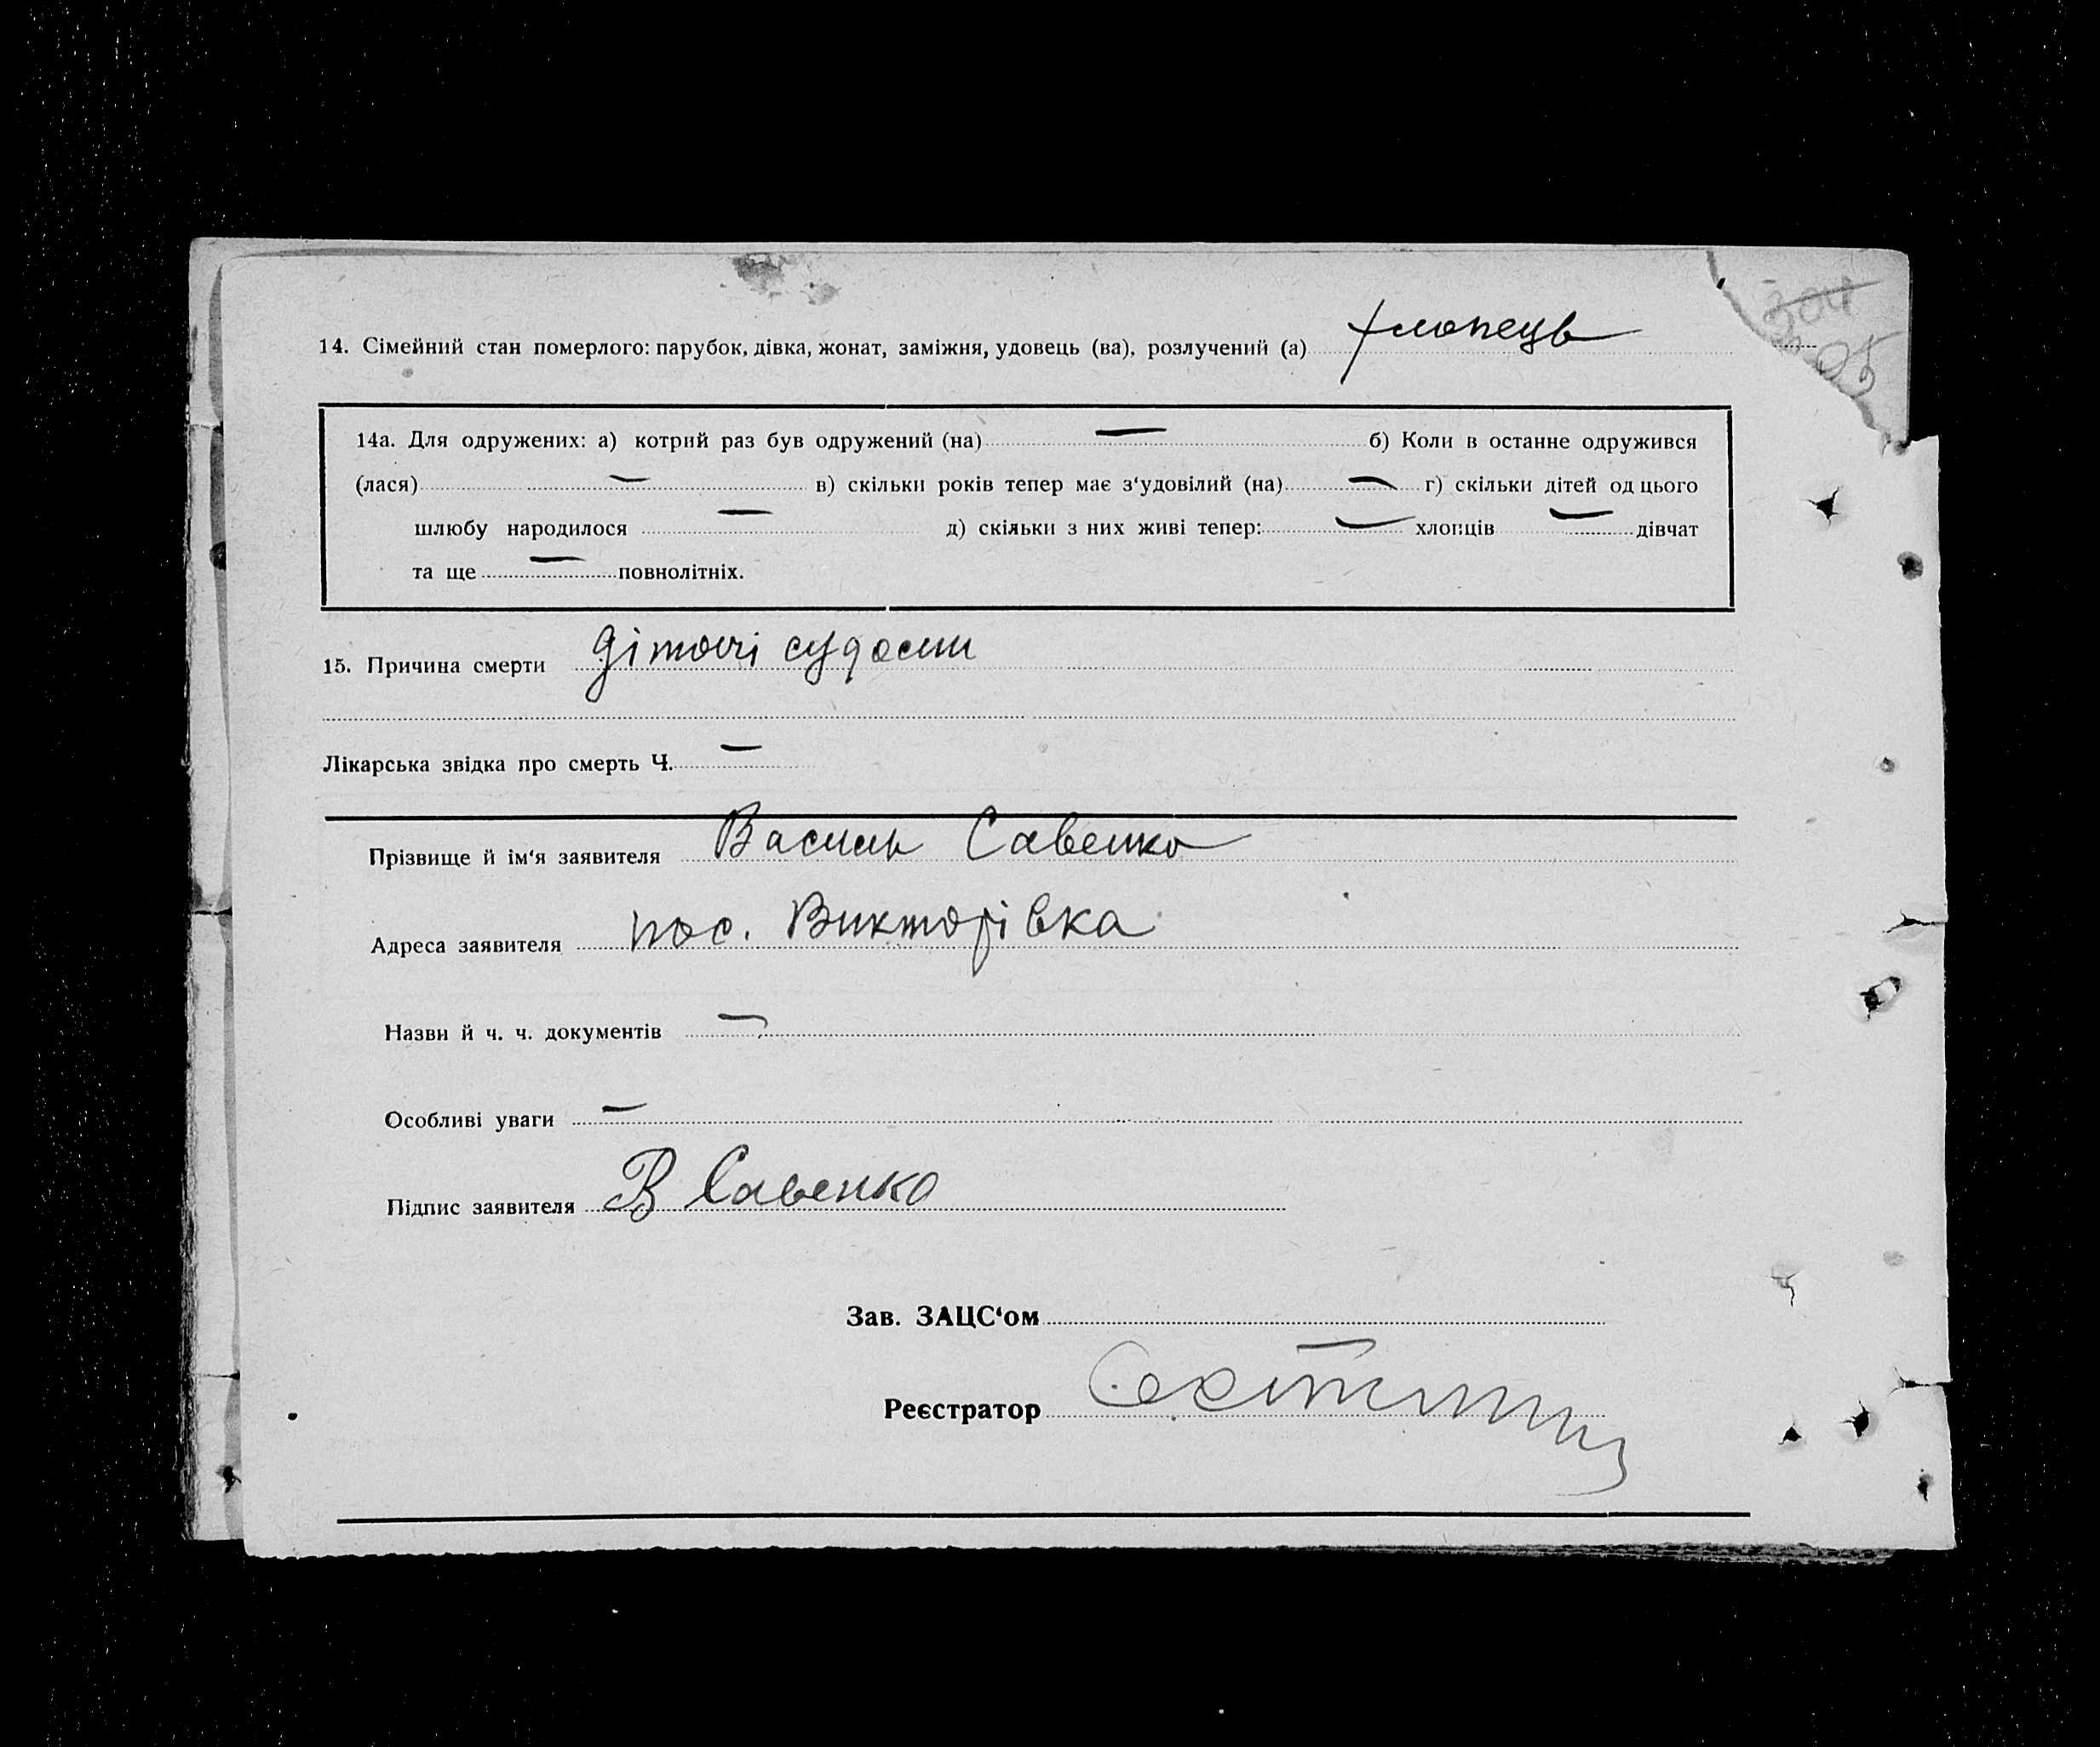 304
05
14. Сімейний стан померлого: парубок, дівка, жонат, заміжня, удовець (ва), розлучений (а) хлопець
14а. Для одружених: а) котрий раз був одружений (на) — б) Коли в останне одружився
(лася) — в) скільки років тепер має з‘удовілий (на) — г) скільки дітей од цього
шлюбу народилося — д) скільки з них живі тепер: — хлопців — дівчат
та ще — повнолітніх.
15. Причина смерти діточі судоми
Лікарська звідка про смерть Ч. —
Прізвище й ім‘я заявителя Василь Савенко
Адреса заявителя пос. Викторівка
Назви й ч. ч. документів —
Особливі уваги —
Підпис заявителя В Савенко
Зав. ЗАЦС‘ом
Реєстратор